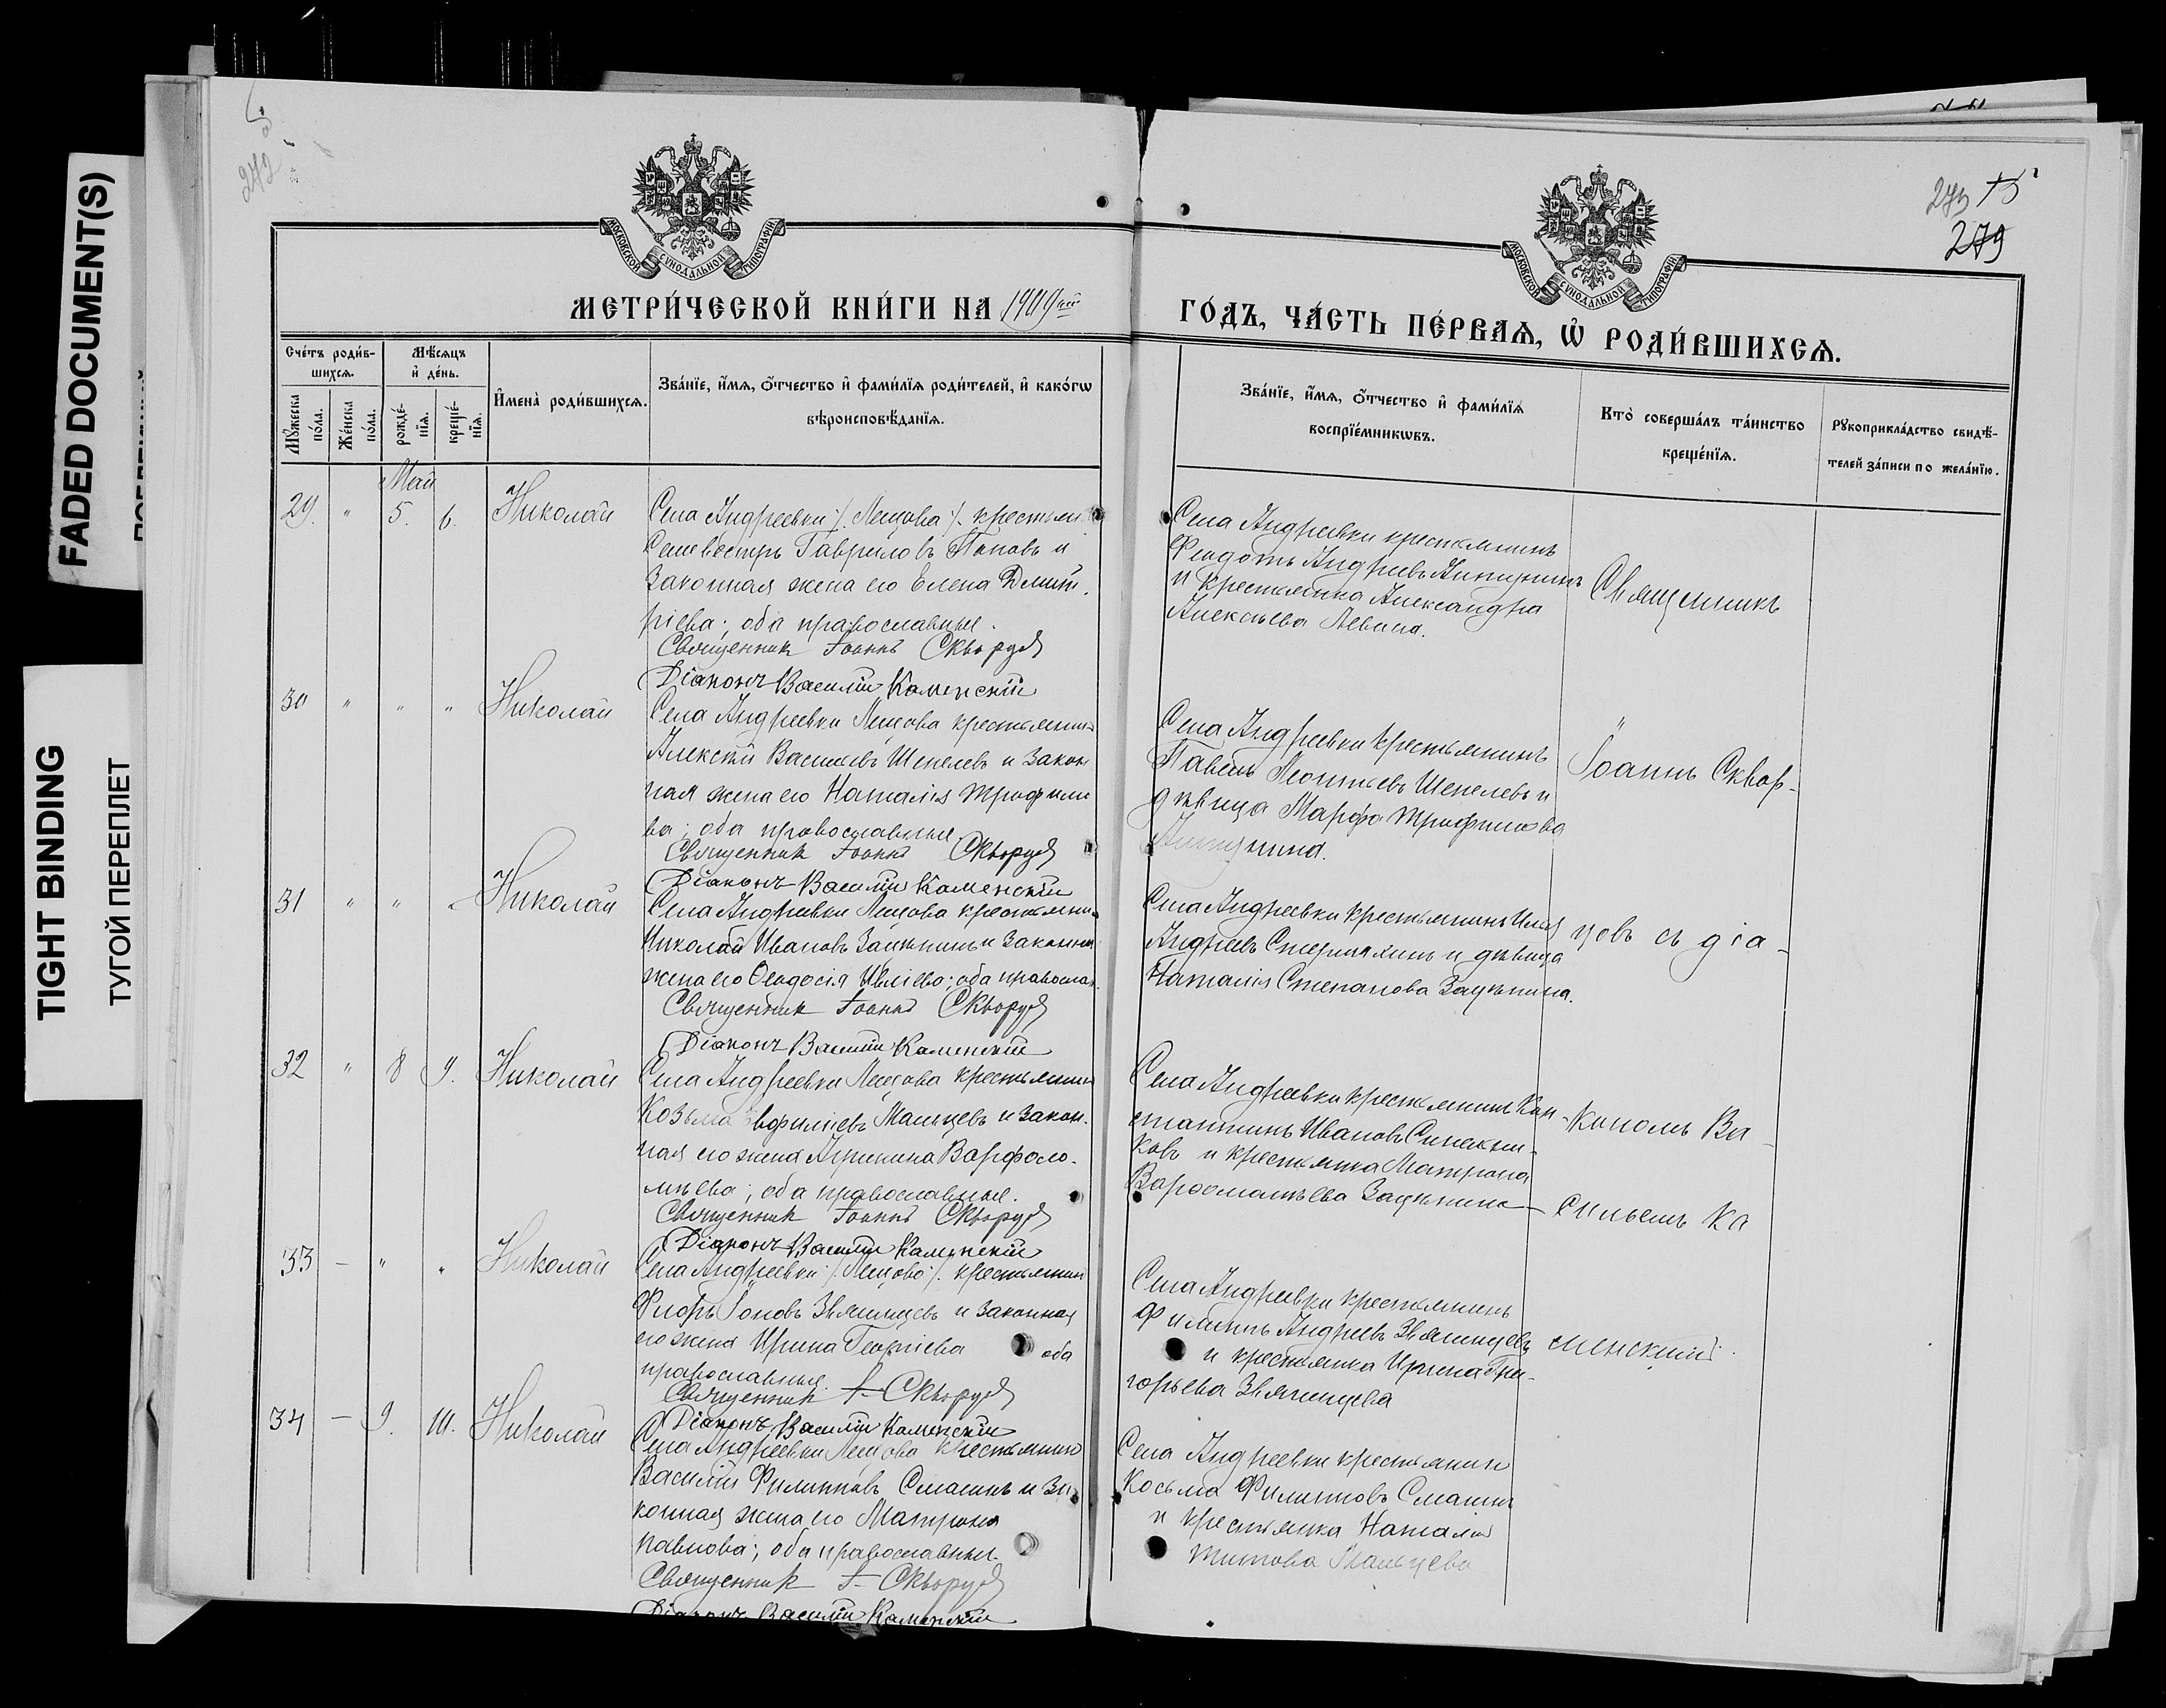 FADED DOCUMENT(S)
TIGHT BINDING
ТУГОЙ ПЕРЕПЛЕТ
242
273 15
279
МОСКОВСКОЙ СѴНОДАЛЬНОЙ ТИПОГРАФІИ
МОСКОВСКОЙ СѴНОДАЛЬНОЙ ТИПОГРАФІИ
МЕТРИ́ЧЕСКОЙ КНИ́ГИ НА 1909ый
ГО́ДЪ, ЧА́СТЬ ПЕ́РВАѦ, Ѡ҆ РОДИ́ВШИХСѦ.
Сче́тъ роди́в-
шихсѧ.
Мꙋ́жеска по́ла.
Же́нска по́ла.
Мѣ́сѧцъ
и҆ де́нь.
рожде́-нїѧ.
креще́-нїѧ.
И҆мена̀ роди́вшихсѧ.
Зва́нїе, и҆́мѧ, ѻ҆́тчество и҆ фами́лїѧ роди́телей, и҆ како́гѡ
вѣроисповѣ́данїѧ.
Зва́нїе, и҆́мѧ, ѻ҆́тчество и҆ фами́лїѧ
воспрїе́мникѡвъ.
Кто̀ соверша́лъ та́инство
креще́нїѧ.
Рꙋкоприкла́дство свидѣ́-
телей за́писи по жела́нїю.
Май
29. " 5. 6. Николай
Села Андреевки /. Лещова /. крестьян.
Селевестръ Гавриловъ Поповъ и
Законная жена его Елена Дмит.
ріева; оба православные.
Священник Іоаннъ Скворцов
Діаконъ Василій Каменскій
Села Андреевки крестьянинъ
Ѳеодотъ Андреевъ
и крестьянка Александра
Алексѣева Левина.
Священникъ
30 " " " Николай
Села Андреевки Лещова крестьянинъ
Алексѣй Васильевъ Шепелевъ и закон
ная жена его Наталія Трофимо
ва; оба православные
Священник Іоаннъ Скворцов
Діаконъ Василій Каменскій
Села Андреевки крестьянинъ
Павелъ Леонтьевъ Шепелевъ и
дѣвица Марфа Трофимова
Іоаннъ Сквор-
31 " " " Николай
Села Андреевки Лещова крестьянин
Николай Ивановъ Зацѣпинъ и законная
жена его Ѳеодосія; оба православ.
Священник Іоаннъ Скворцов
Діаконъ Василій Каменскій
Села Андреевки крестьянинъ Илья
Андреевъ и дѣвица
Наталія Степанова Зацѣпина.
цовъ съ діа-
32 " 8 9. Николай
Села Андреевки Лещова крестьянин
Козьма Мальцевъ и закон.
ная его жена Агрипина Варфоло-
мѣева; оба православные.
Священник Іоаннъ Скворцов
Діаконъ Василій Каменскій
Села Андреевки крестьянинъ Кон-
стантинъ Ивановъ
ковъ и крестьянка Матрона
Варфоломѣева Зацѣпина
кономъ Ва-
сильемъ Ка
33 — " " Николай
Села Андреевки /. Лещово /. крестьянин
Флоръ Іоновъ Звягинцевъ и законная
его жена Ирина Георгіева оба
православные.
Священник І- Скворцов
Діаконъ Василій Каменскій
Села Андреевки крестьянинъ
Филиппъ Андреевъ Звягинцевъ
и крестьянка Ирина Гри-
горьева Звягинцева
менскимъ.
34 — 9. 10. Николай
Села Андреевки Лещова крестьянин
Василій Филипповъ Смагинъ и за
конная жена его Матрона
Павлова; оба православны.
Священник І- Скворцов
Діаконъ Василій Каменскій
Села Андреевки крестьянин
Косьма Филипповъ Смагинъ
и крестьянка Наталія
Титова Мальцева